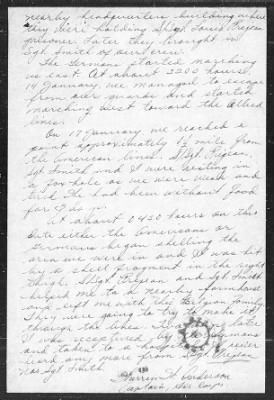 nearby headquarters building where
they were holding S/Sgt Louis
prisoner. Later they brought in
Sgt Smith of our crew.
The Germans started marching
us east. At about 2200 hours,
14 January, we managed to escape
from our guards and started
marching west toward the Allied
lines.
On 17 January we reached a
point approximately 1/2 mile from
the American lines. S/Sgt
Sgt Smith and I were resting in
a fox hole as we were weak and
tired and had been without food
for
At about 0430 hours on this
date either the Americans or
Germans began shelling the
area we were in and I was hit
by a shell fragment in the right
thigh. S/Sgt and Sgt Smith
helped me to a nearby farmhouse
and left me with the Belgian family.
They were going to try to make it
through the lines. later
I was recaptured by the Germans
and taken to a hospital. I never
heard any more from S/Sgt
nor Sgt Smith.
Warren H. Anderson
Captain, Air Corps